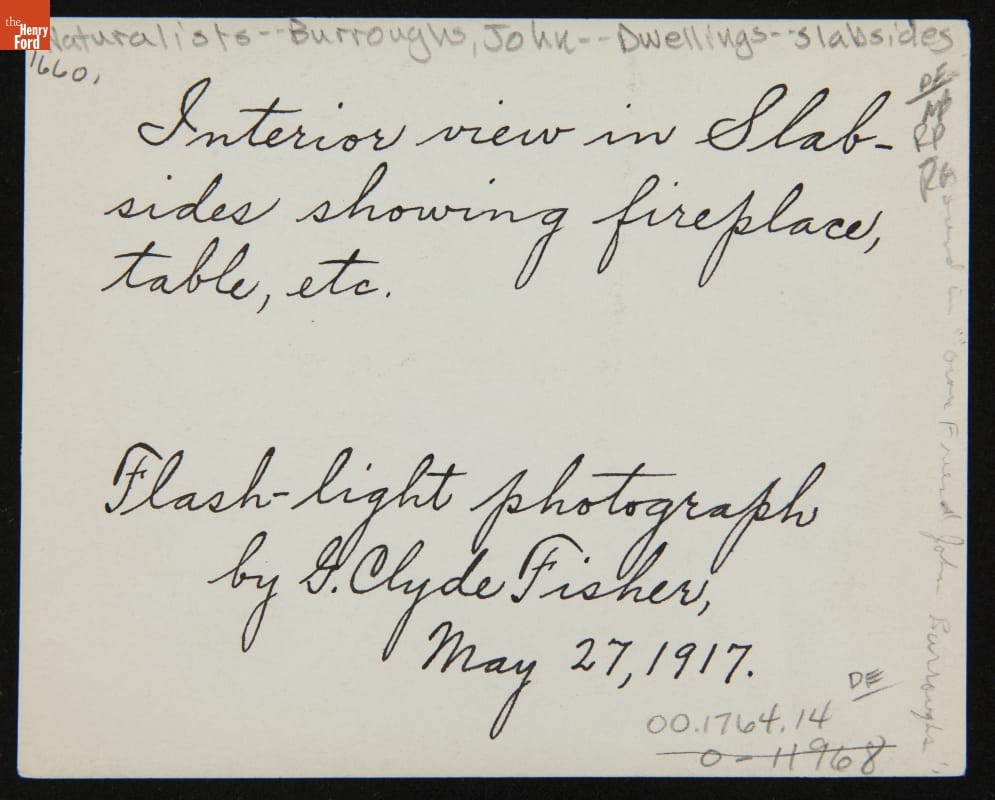 the
Henry
Ford
Naturalists--Burroughs, John--Dwellings--slabsides
1660,
Interior view in Slab-
sides showing fireplace,
table, etc.
Flash-light photograph
by G. Clyde Fisher,
May 27, 1917.
DE
RP
in "our Friend John Burroughs"
DE
00.1764.14
0-11968